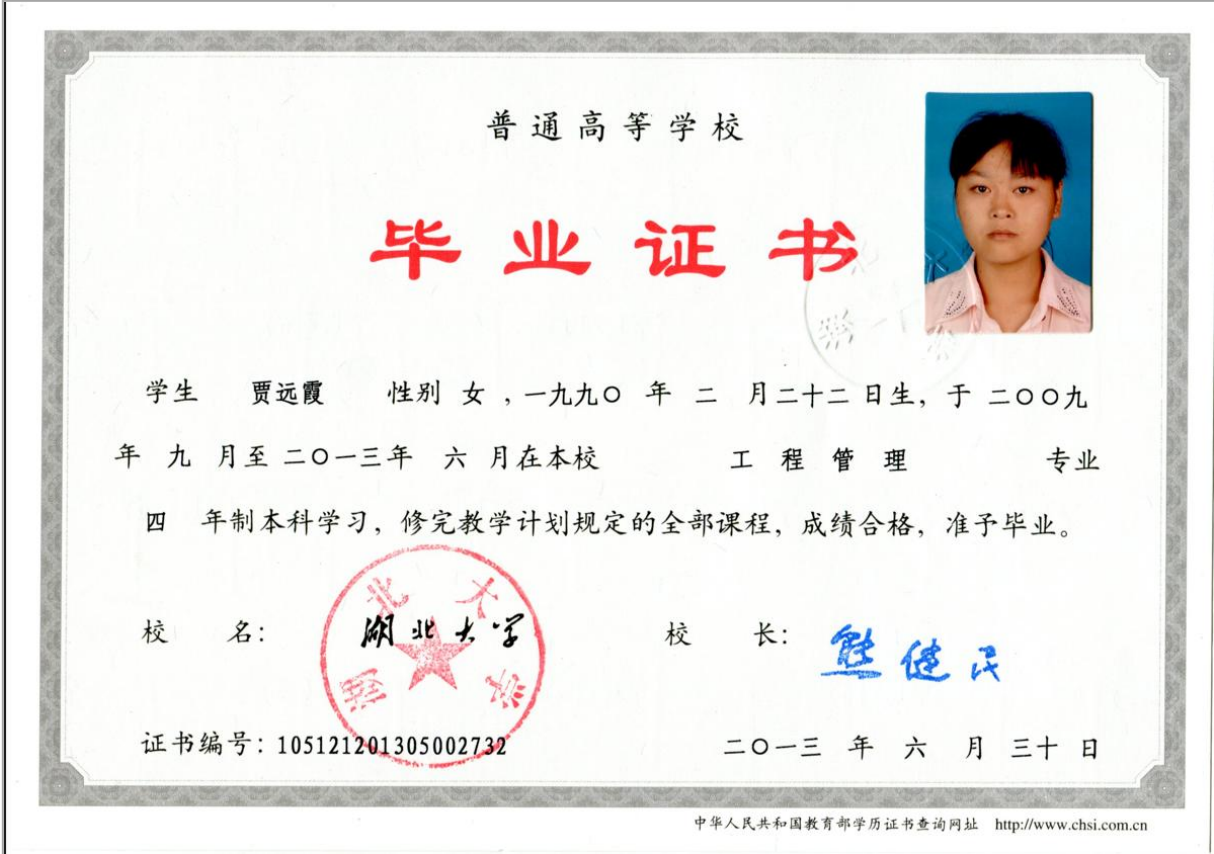 普通高等学校
毕业证书
学生 贾远霞 性别 女，一九九〇 年 二 月二十二日生，于 二〇〇九
年 九 月至 二〇一三年 六 月在本校 工 程 管 理 专业
四 年制本科学习，修完教学计划规定的全部课程，成绩合格，准予毕业。
校 名： 湖北大学 校 长： 熊健民
湖北大学
证书编号：105121201305002732 二〇一三 年 六 月 三十 日
中华人民共和国教育部学历证书查询网址 http://www.chsi.com.cn